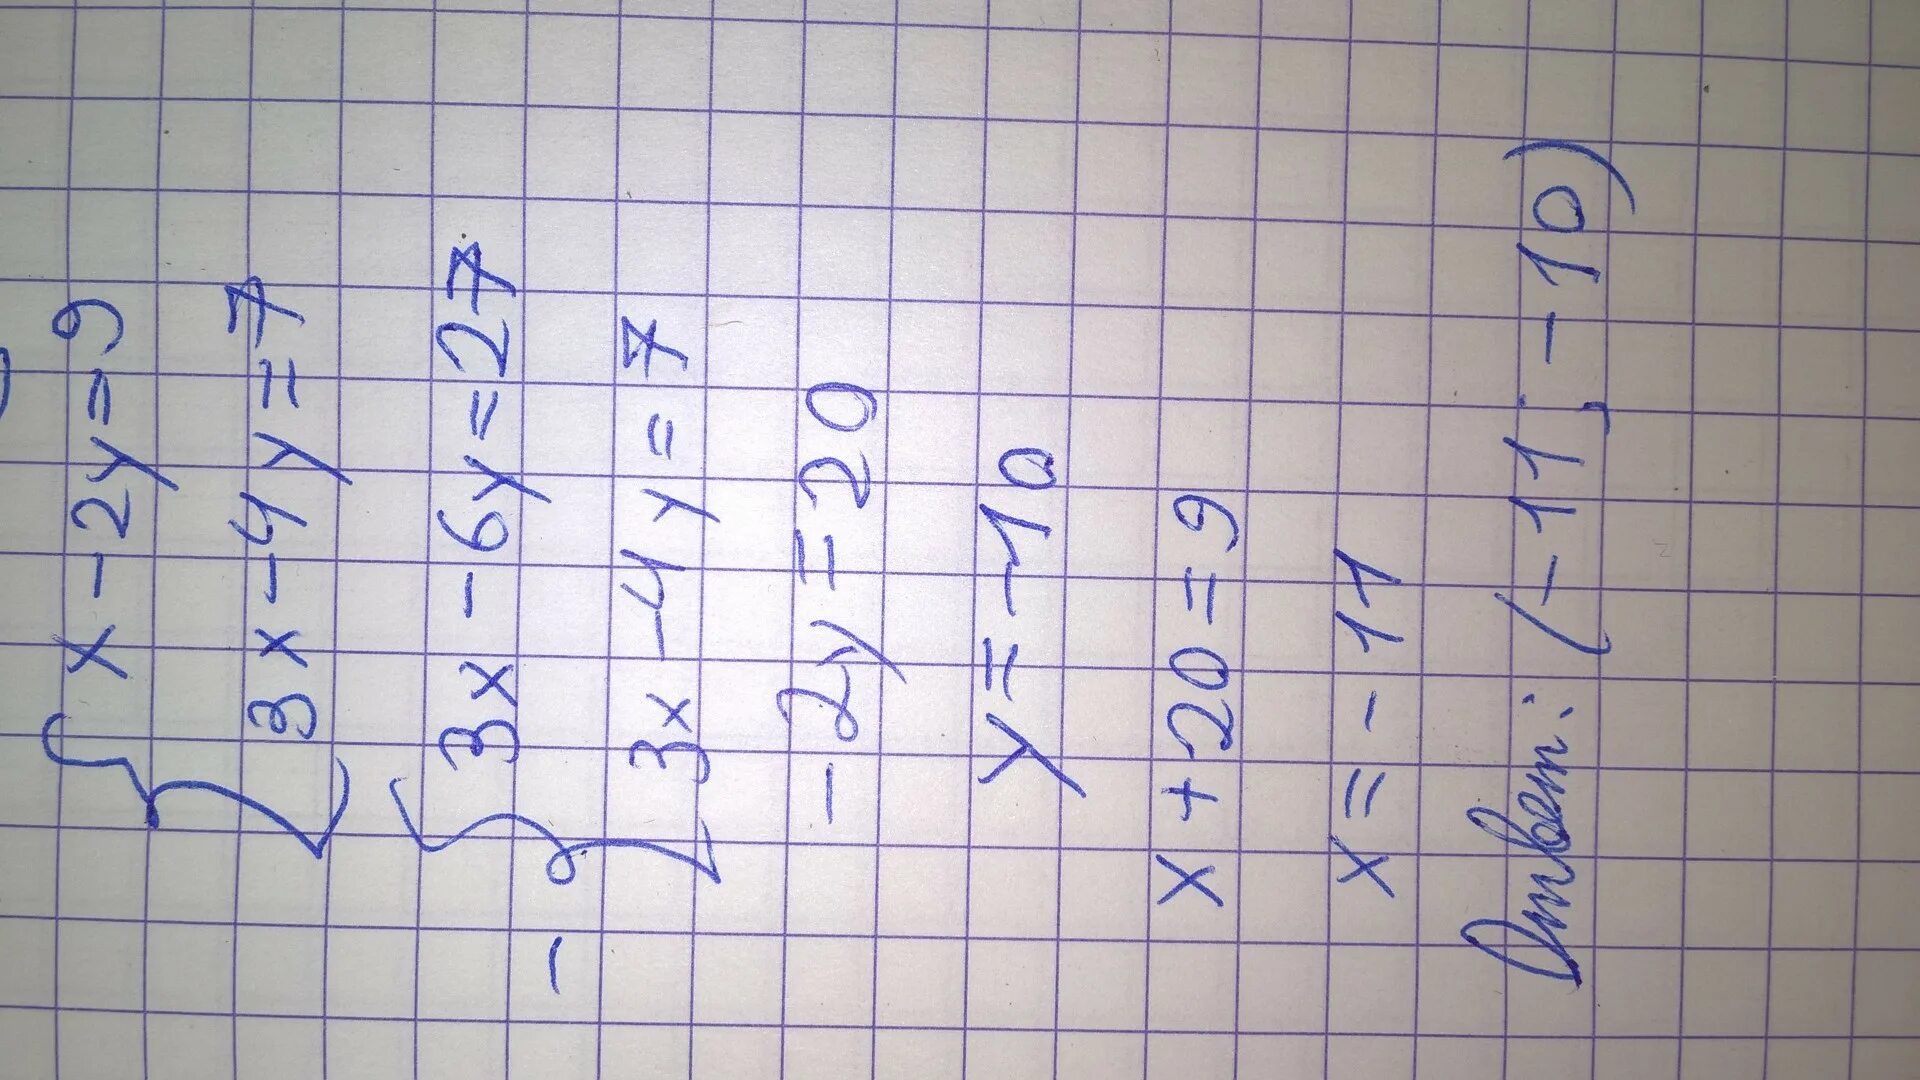 { x - 2y = 9
3x - 4y = 7
- { 3x - 6y = 27
3x - 4y = 7
- 2y = 20
y = -10
x + 20 = 9
x = - 11
Ответ: (-11; -10)